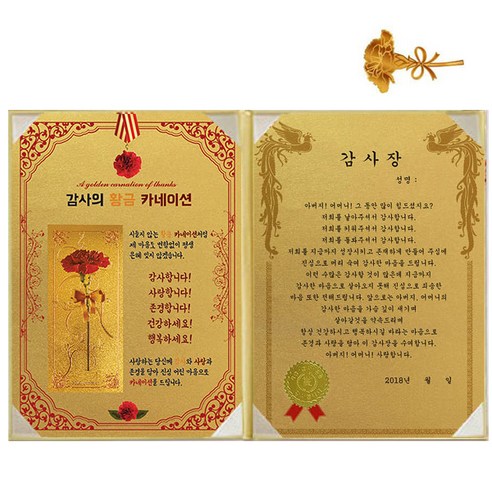 A golden carnation of thanks
감사의 황금 카네이션
시들지 않는 황금 카네이션처럼
제 마음도 변함없이 평생
은혜 잊지 않겠습니다.
감사합니다!
사랑합니다!
존경합니다!
건강하세요!
행복하세요!
사랑하는 당신에 와 사랑과
존경을 담아 진심 어린 마음으로
카네이션을 드립니다.
감사장
성명 :
아버지! 어머니! 그 동안 많이 힘드셨지요?
저희를 낳아주셔서 감사합니다.
저희를 키워주셔서 감사합니다.
저희를 돌봐주셔서 감사합니다.
저희를 지금까지 성장시키고 존재하게 만들어 주심에
진심으로 머리 숙여 감사한 마음을 드립니다.
이런 수많은 감사할 것이 많은데 지금까지
감사한 마음으로 살아오지 못해 진심으로 죄송한
마음 또한 전해드립니다. 앞으로는 아버지, 어머니의
감사한 마음을 가슴 깊이 새기며
살아갈것을 약속드리며
항상 건강하시고 행복하시길 바라는 마음으로
존경과 사랑을 담아 이 감사장을 수여합니다.
아버지! 어머니! 사랑합니다.
2018년 월 일